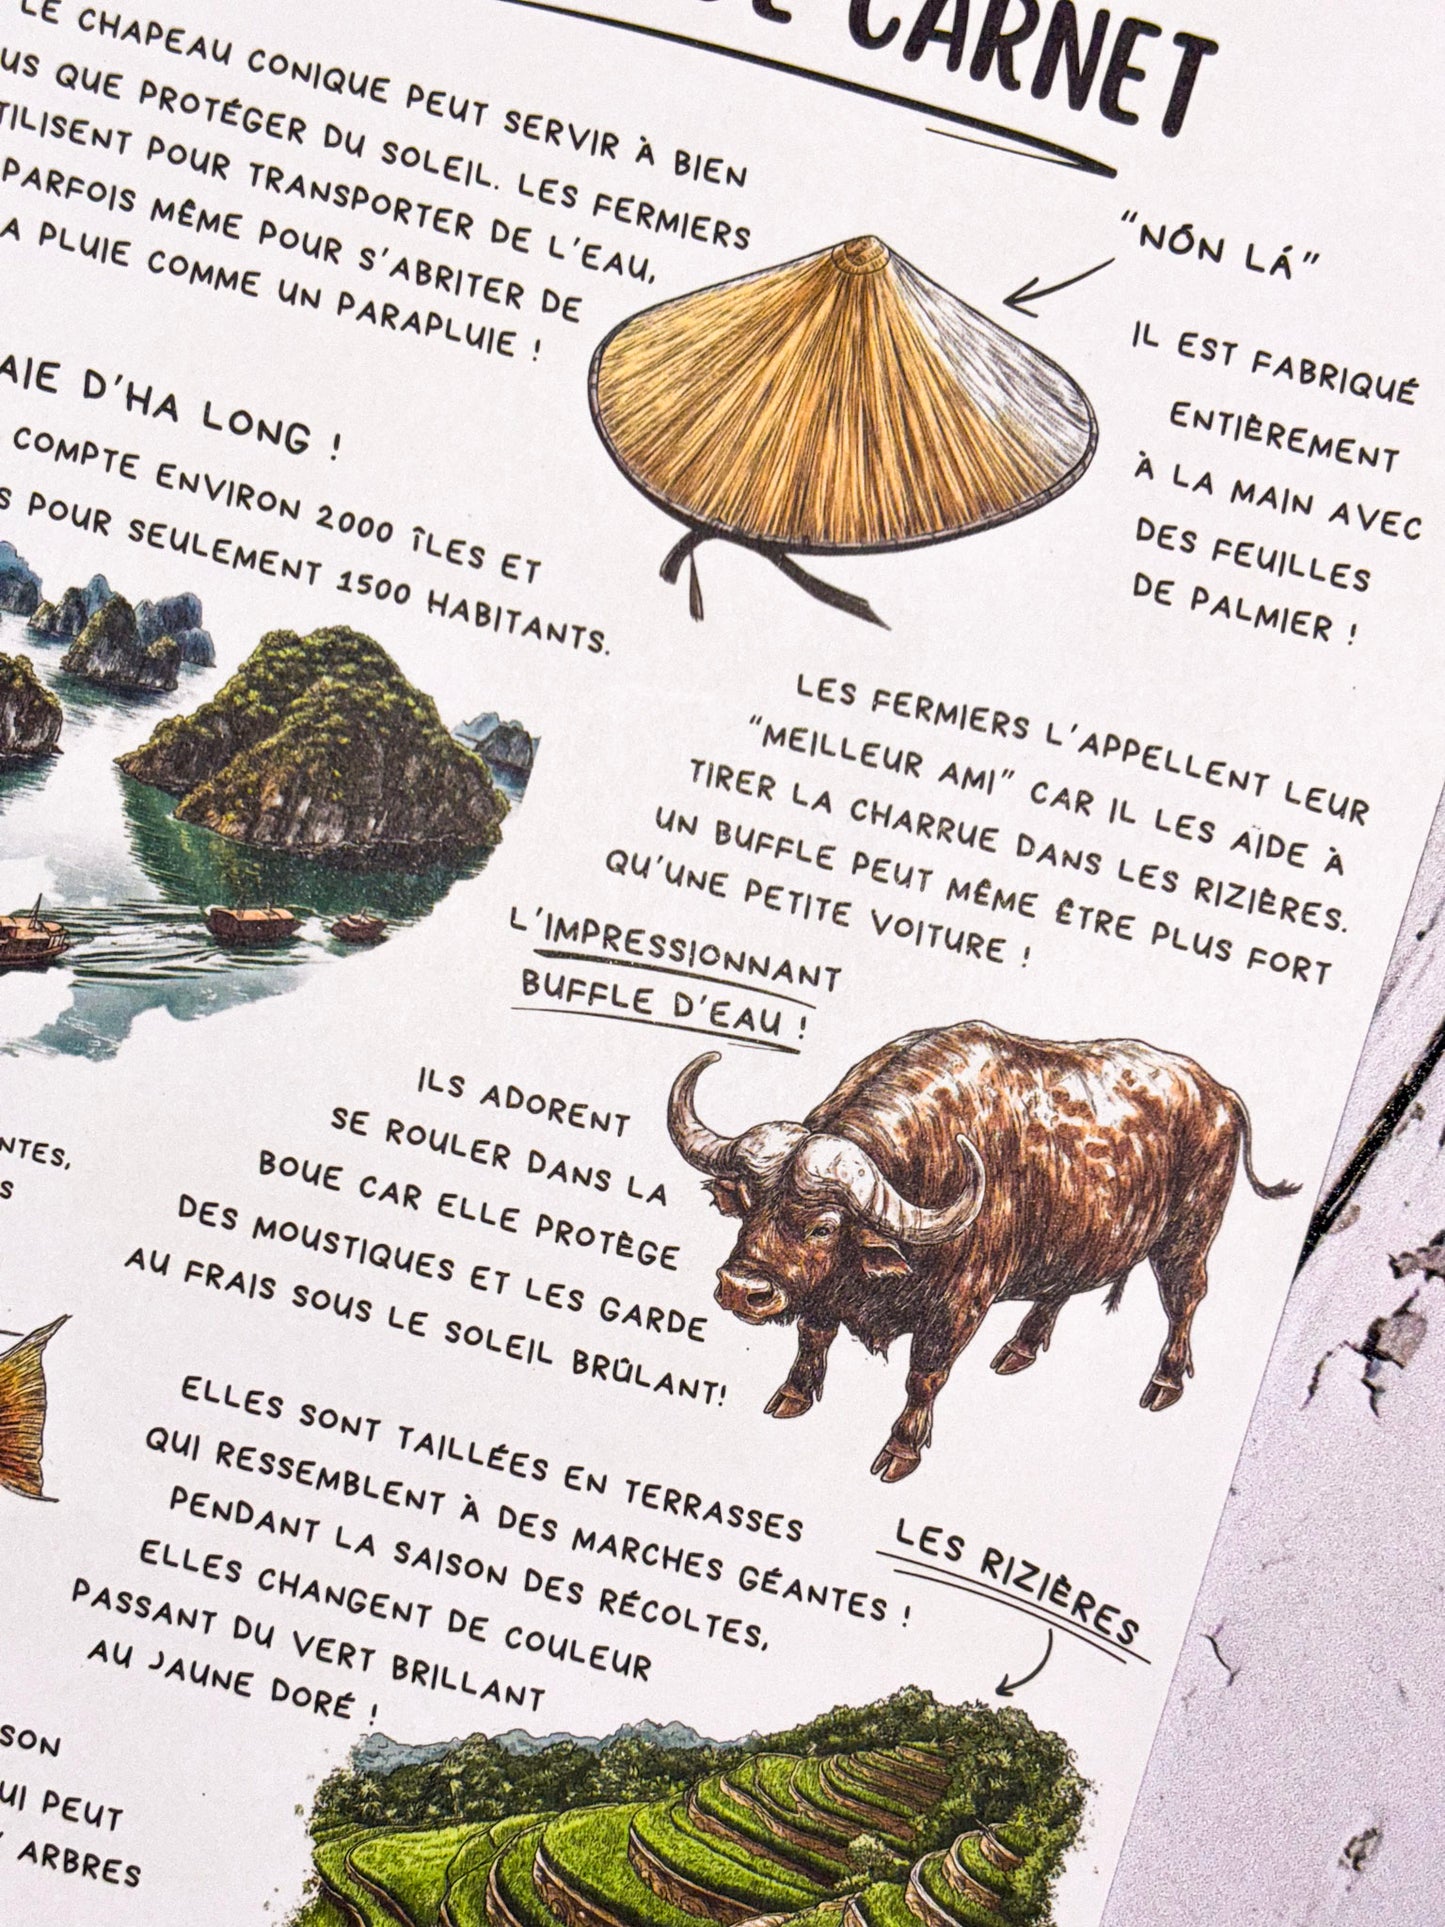 DE CARNET
LE CHAPEAU CONIQUE PEUT SERVIR À BIEN
US QUE PROTÉGER DU SOLEIL. LES FERMIERS
TILISENT POUR TRANSPORTER DE L'EAU,
PARFOIS MÊME POUR S'ABRITER DE
A PLUIE COMME UN PARAPLUIE !
"NÓN LÁ"
IL EST FABRIQUÉ
ENTIÈREMENT
À LA MAIN AVEC
DES FEUILLES
DE PALMIER !
AIE D'HA LONG !
COMPTE ENVIRON 2000 ÎLES ET
S POUR SEULEMENT 1500 HABITANTS.
LES FERMIERS L'APPELLENT LEUR
"MEILLEUR AMI" CAR IL LES AIDE À
TIRER LA CHARRUE DANS LES RIZIÈRES.
UN BUFFLE PEUT MÊME ÊTRE PLUS FORT
QU'UNE PETITE VOITURE !
L'IMPRESSIONNANT
BUFFLE D'EAU !
ILS ADORENT
SE ROULER DANS LA
BOUE CAR ELLE PROTÈGE
DES MOUSTIQUES ET LES GARDE
AU FRAIS SOUS LE SOLEIL BRÛLANT!
NTES,
S
ELLES SONT TAILLÉES EN TERRASSES
QUI RESSEMBLENT À DES MARCHES GÉANTES !
PENDANT LA SAISON DES RÉCOLTES,
ELLES CHANGENT DE COULEUR
PASSANT DU VERT BRILLANT
AU JAUNE DORÉ !
LES RIZIÈRES
SON
UI PEUT
ARBRES